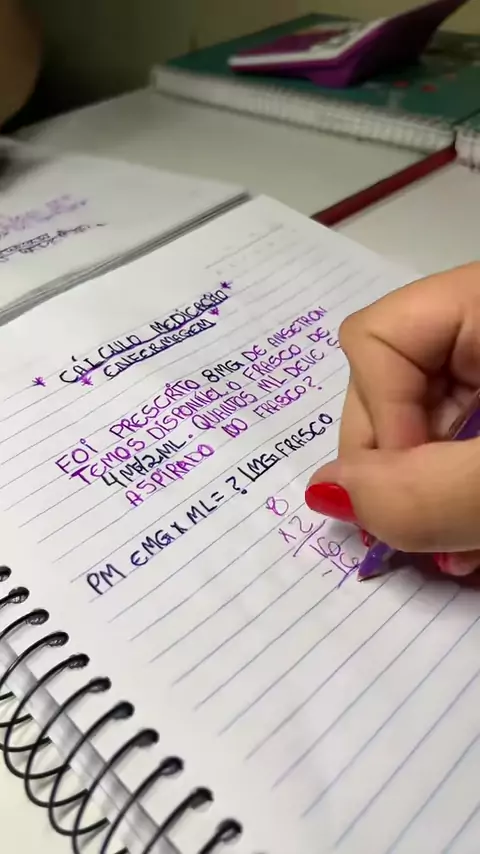 * CÁLCULO MEDICAÇÃO *
* ENFERMAGEM *
FOI PRESCRITO 8MG DE ANSETRON
TEMOS DISPONÍVEL O FRASCO DE
4MG/2ML. QUANTOS ML DEVE S
ASPIRADO DO FRASCO?
PM EMG X ML = ? 1MG FRASCO
8
x2
16
-16